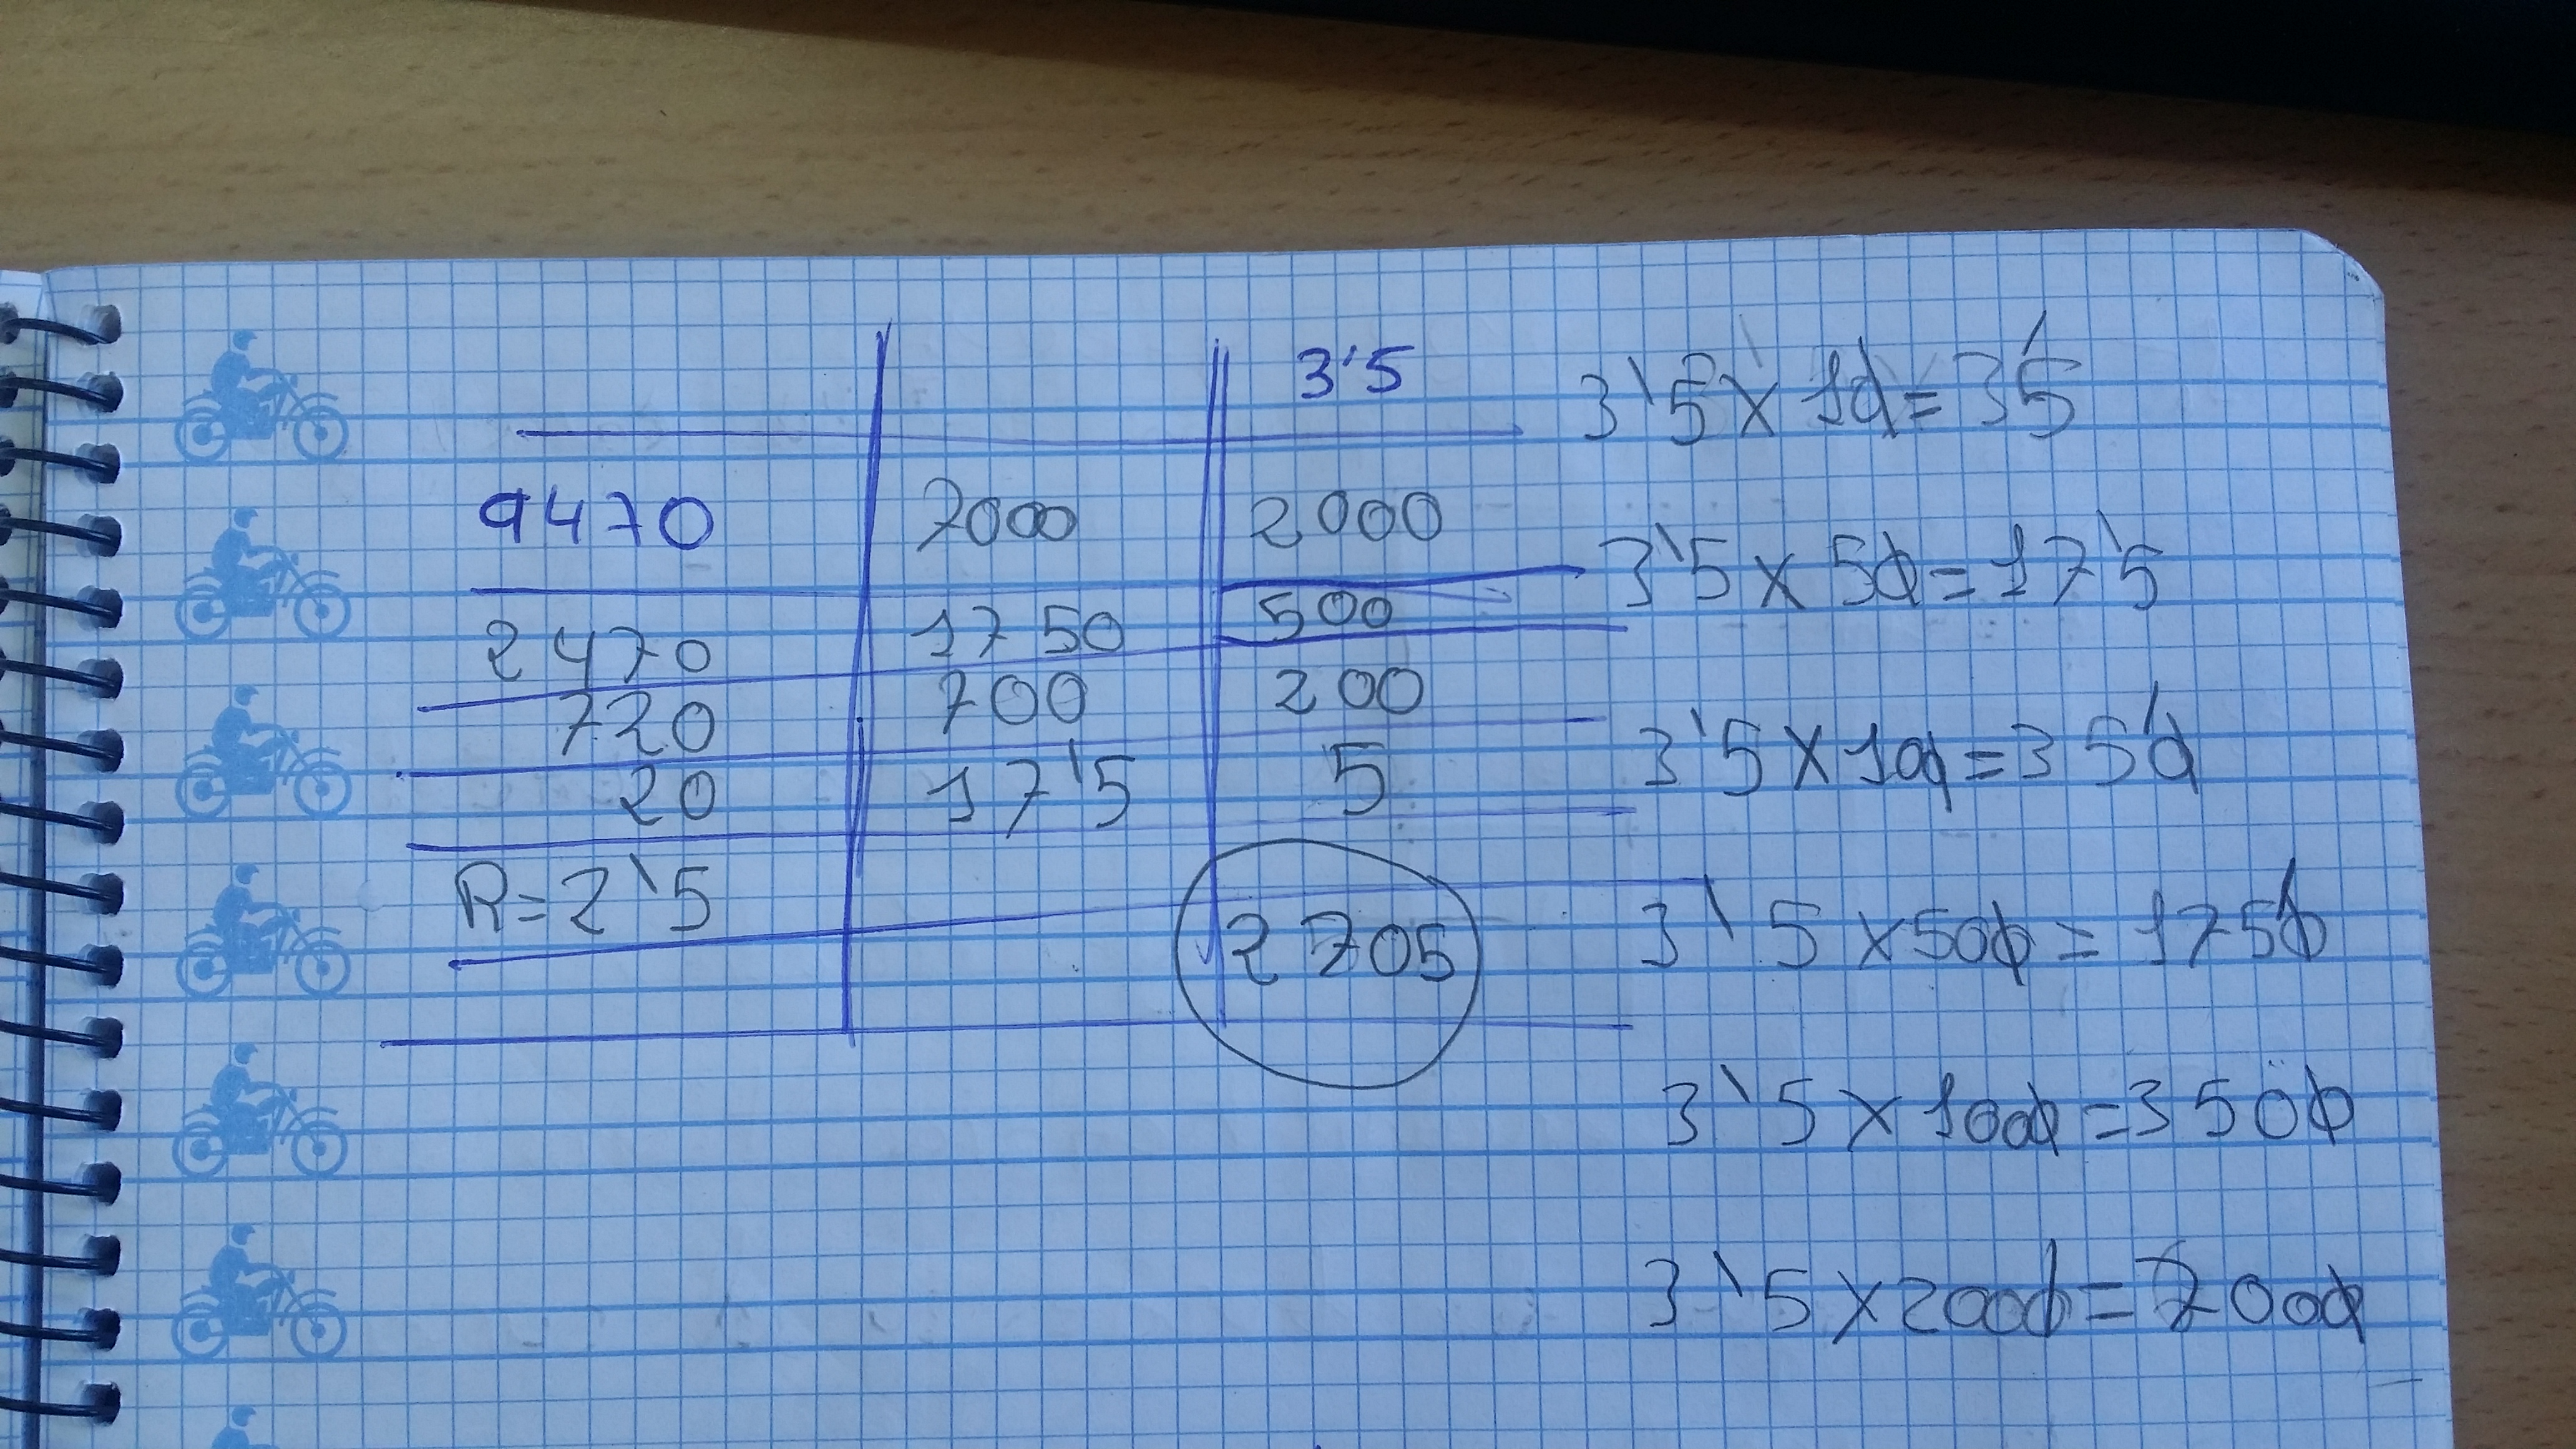 3'5
9470 7000 2000
2470 1750 500
720 700 200
20 17'5 5
R=2'5
2705
3'5 x 10 = 35
3'5 x 50 = 17'5
3'5 x 10 0 = 350
3'5 x 500 = 1750
3'5 x 1000 = 3500
3'5 x 2000 = 7000